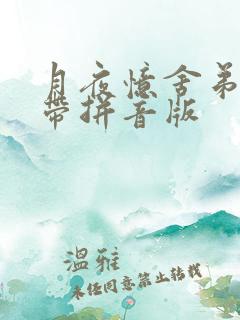 月夜憶舍弟
帶拼音版
溫雅
未经同意禁止转载